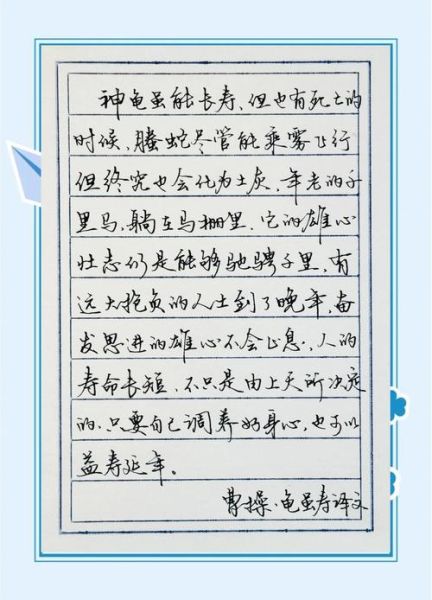 神龟虽能长寿，但也有死亡的
时候，腾蛇尽管能乘雾飞行
但终究也会化为土灰，年老的千
里马，躺在马棚里，它的雄心
壮志仍是能够驰骋千里，有
远大抱负的人士到了晚年，奋
发思进的雄心不会止息，人的
寿命长短，不只是由上天所决定
的，只要自己调养好身心，也可以
益寿延年。
曹操·龟虽寿译文